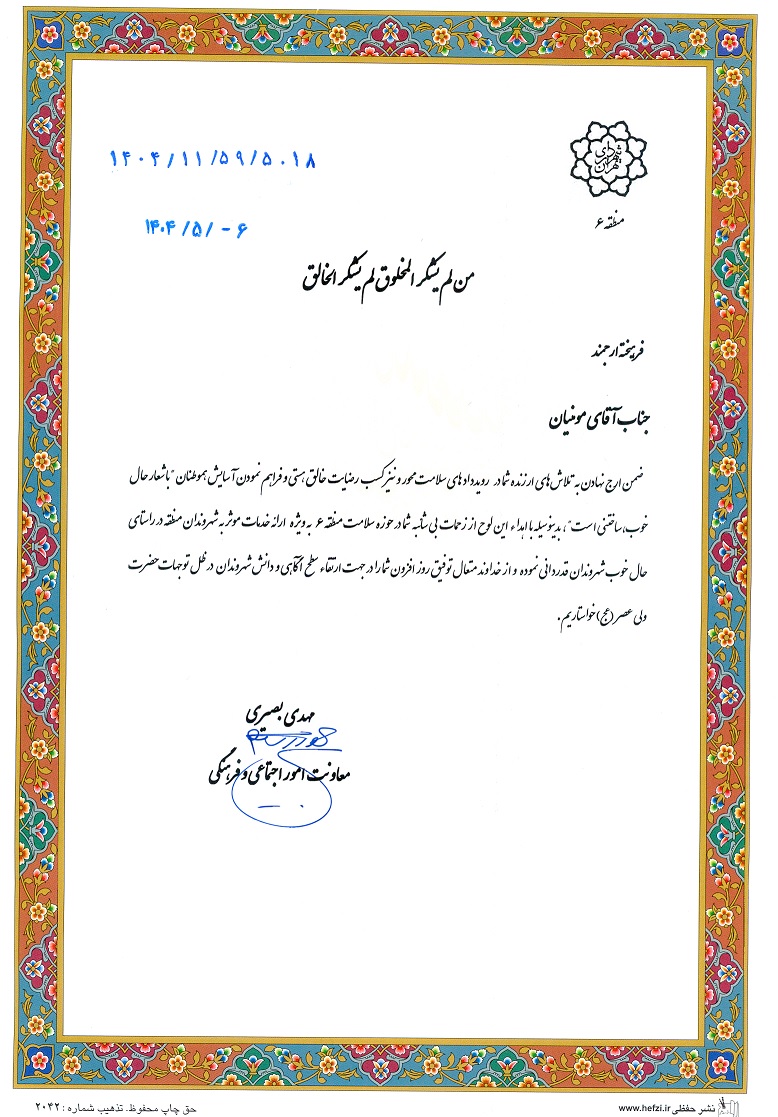 شهرداری تهران
منطقه ۶
۱۴۰۴/۱۱/۵۹/۵۰۱۸
۱۴۰۴/۵/-۶
من لم یشکر المخلوق لم یشکر الخالق
فرهیخته ارجمند
جناب آقای مومنیان
ضمن ارج نهادن به تلاش های ارزنده شما در رویدادهای سلامت محور و نیز کسب رضایت خالق هستی و فراهم نمودن آسایش هموطنان "با شعار حال
خوب، ساختنی است"، بدینوسیله با اهداء این لوح از زحمات بی شائبه شما در حوزه سلامت منطقه ۶ به ویژه ارائه خدمات موثر به شهروندان منطقه در راستای
حال خوب شهروندان قدردانی نموده و از خداوند متعال توفیق روز افزون شما را در جهت ارتقاء سطح آگاهی و دانش شهروندان در ظل توجهات حضرت
ولی عصر (عج) خواستاریم.
مهدی بصیری
معاونت امور اجتماعی و فرهنگی
نشر حفظی www.hefzi.ir
حق چاپ محفوظ. تذهیب شماره : ۲۰۴۲